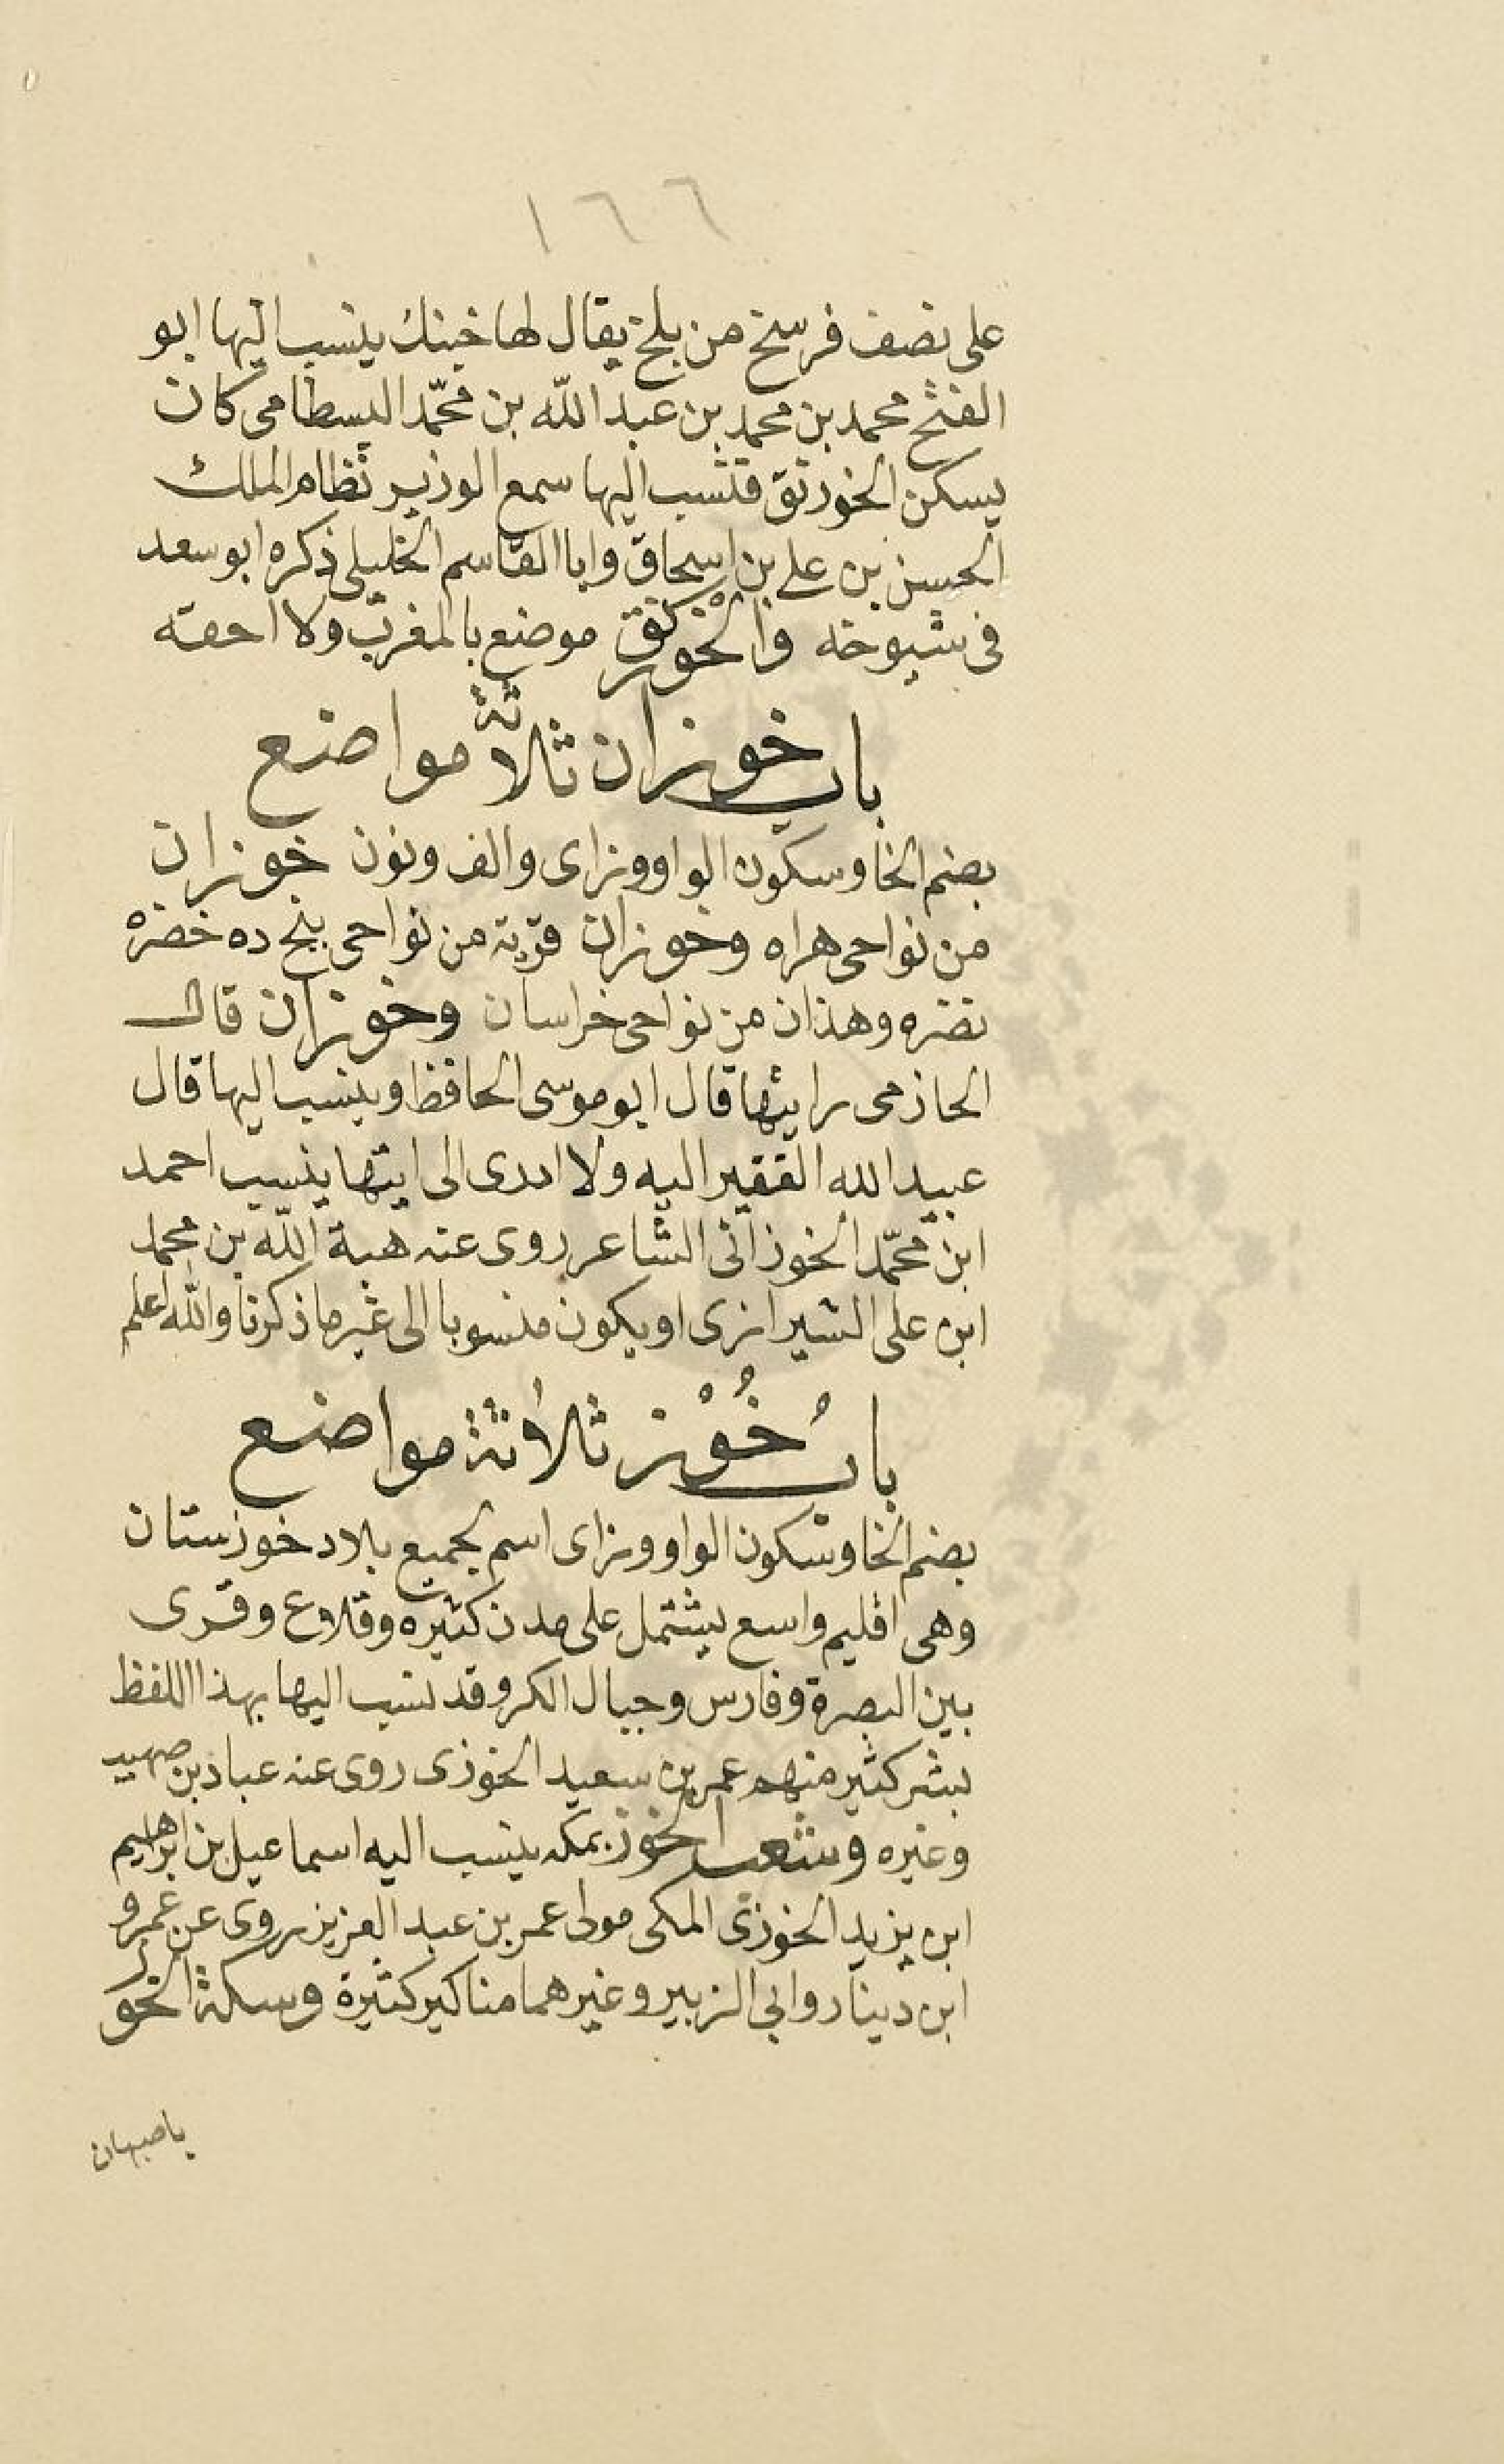 ١٦٦
على نصف فرسخ من بلخ يقال لها خبنك ينسب اليها ابو
الفتح محمد بن محمد بن عبد الله بن محمّد البسطامى كان
يسكن الخورنق فنسب اليها سمع الوزير نظام الملك
الحسن بن على بن اسحاق وابا القاسم الخليلى ذكره ابو سعد
فى شيوخه والخورنق موضع بالمغرب ولا احقه
باب خوزان ثلاثة مواضع
بضم الخا وسكون الواو وزاى والف ونون خوزان
من نواحى هراه وخوزان قرية من نواحى پنج ده خضره
نضره وهذان من نواحى خراسان وخوزان قال
الحازمى رايتها قال ابو موسى الحافظ وينسب اليها قال
عبيد الله الفقير اليه ولا ادرى الى ايتها ينسب احمد
ابن محمّد الخوزانى الشاعر روى عنه هبة الله بن محمد
ابن على الشيرازى او يكون منسوبا الى غير ما ذكرنا والله اعلم
بابُ خُوْز ثلاثة مواضع
بضم الخا وسكون الواو وزاى اسم لجميع بلاد خوزستان
وهى اقليم واسع يشتمل على مدن كثيره وقلاع وقرى
بين البصرة وفارس وجبال الكر وقد نسب اليها بهذا اللفظ
بشر كثير منهم عمر بن سعيد الخوزى روى عنه عباد بن صهيب
وغيره وشعب الخوز بمكه ينسب اليه اسماعيل بن ابراهيم
ابن يزيد الخوزى المكى مولى عمر بن عبد العزيز روى عن عمرو
ابن دينار وابى الزبير وغيرهما مناكير كثيرة وسكة الخوز
باصبهان